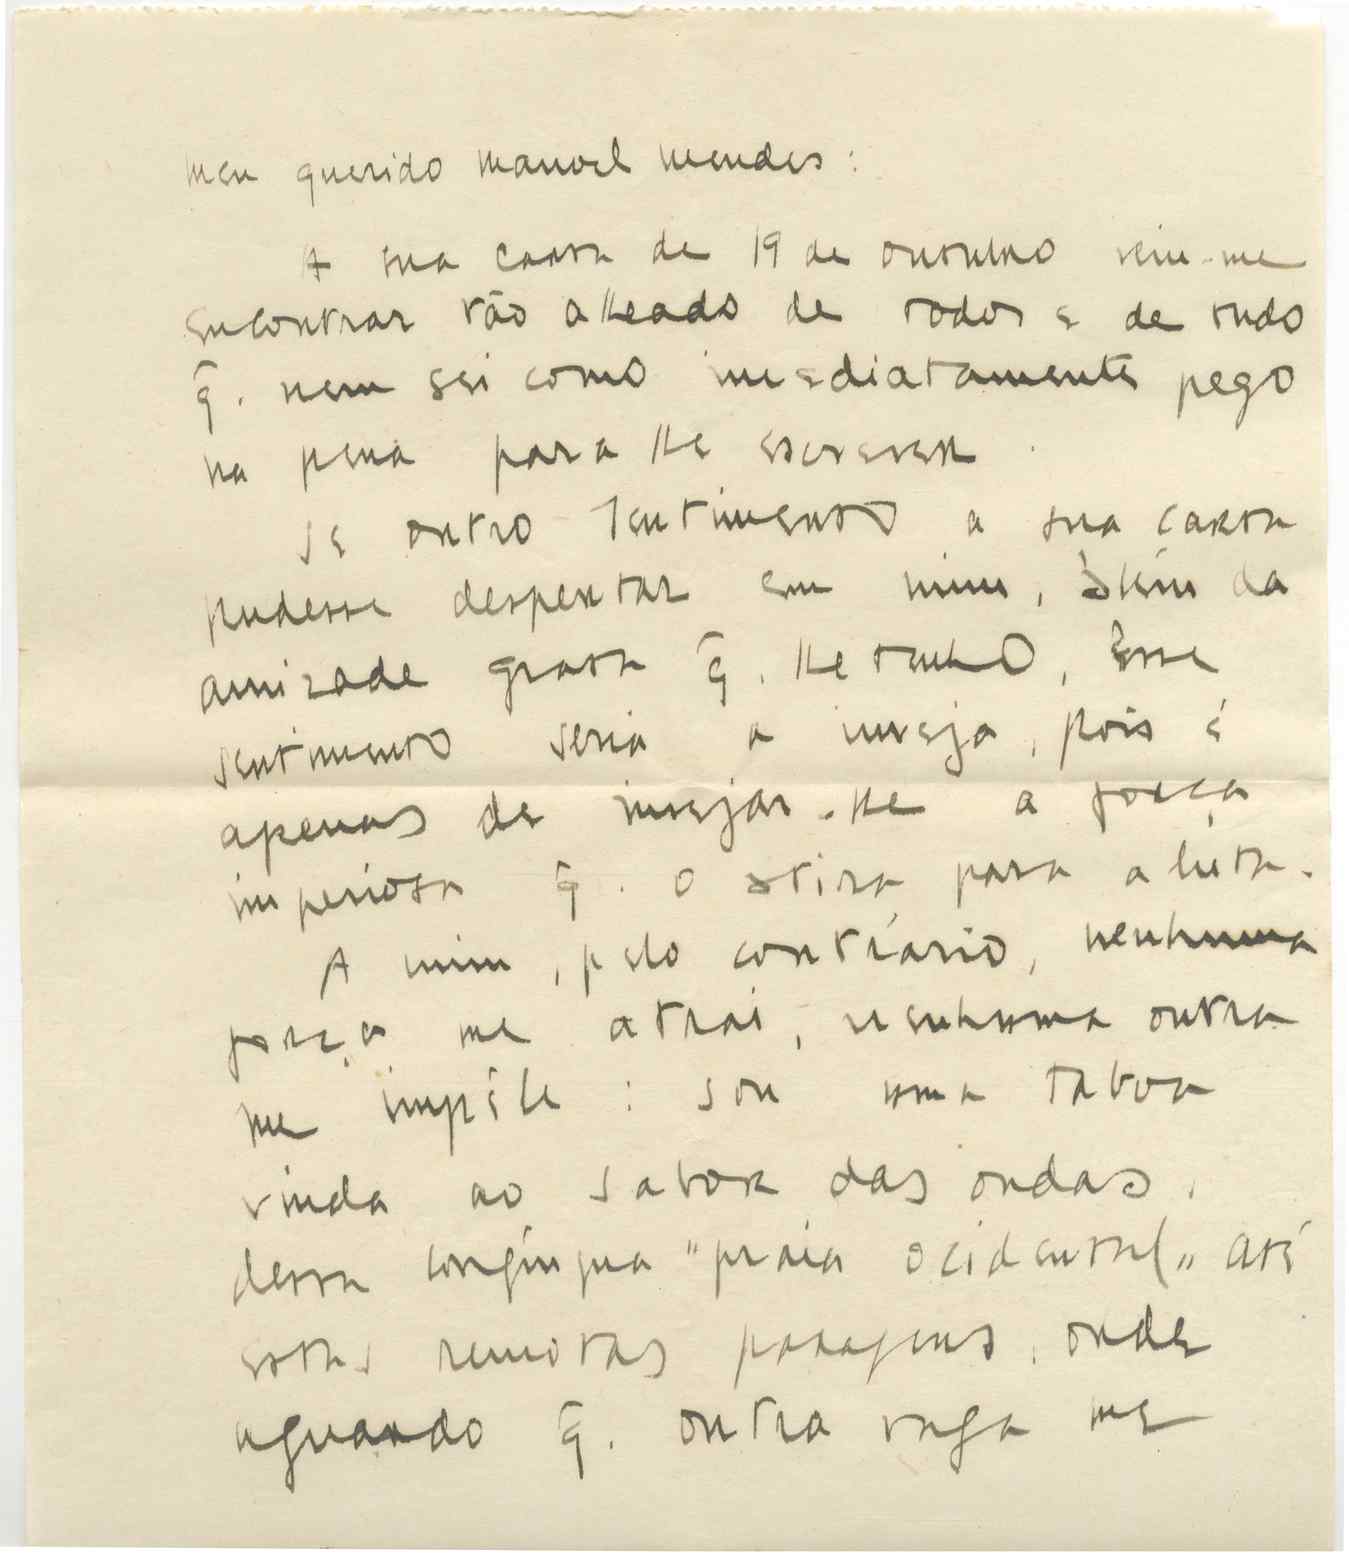 meu querido manoel mendes :
A sua carta de 19 de outubro veiu-me
encontrar tão alheado de todos e de tudo
q̃. nem sei como imediatamente pego
na pena para lhe escrever.
Se outro sentimento a sua carta
pudesse despertar em mim, àlém da
amizade grata q̃. lhe tenho, êsse
sentimento seria a inveja, pois é
apenas de invejar-lhe a força
imperiosa q̃. o atira para a luta.
A mim, pelo contrário, nenhuma
força me atrai, nenhuma outra
me impéle : sou uma taboa
vinda ao sabor das ondas,
dessa longínqua "praia ocidental" até
estas remotas paragens, onde
aguardo q̃. outra vaga me